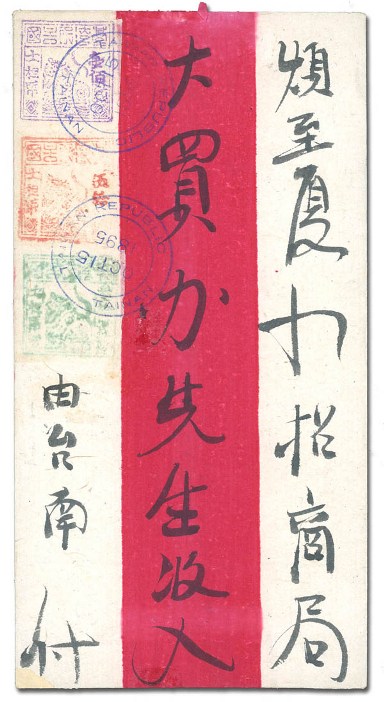 煩至厦门招商局
大買办先生收入
由台南付
TAIWAN REPUBLIC
OCT 15
1895
TAINAN